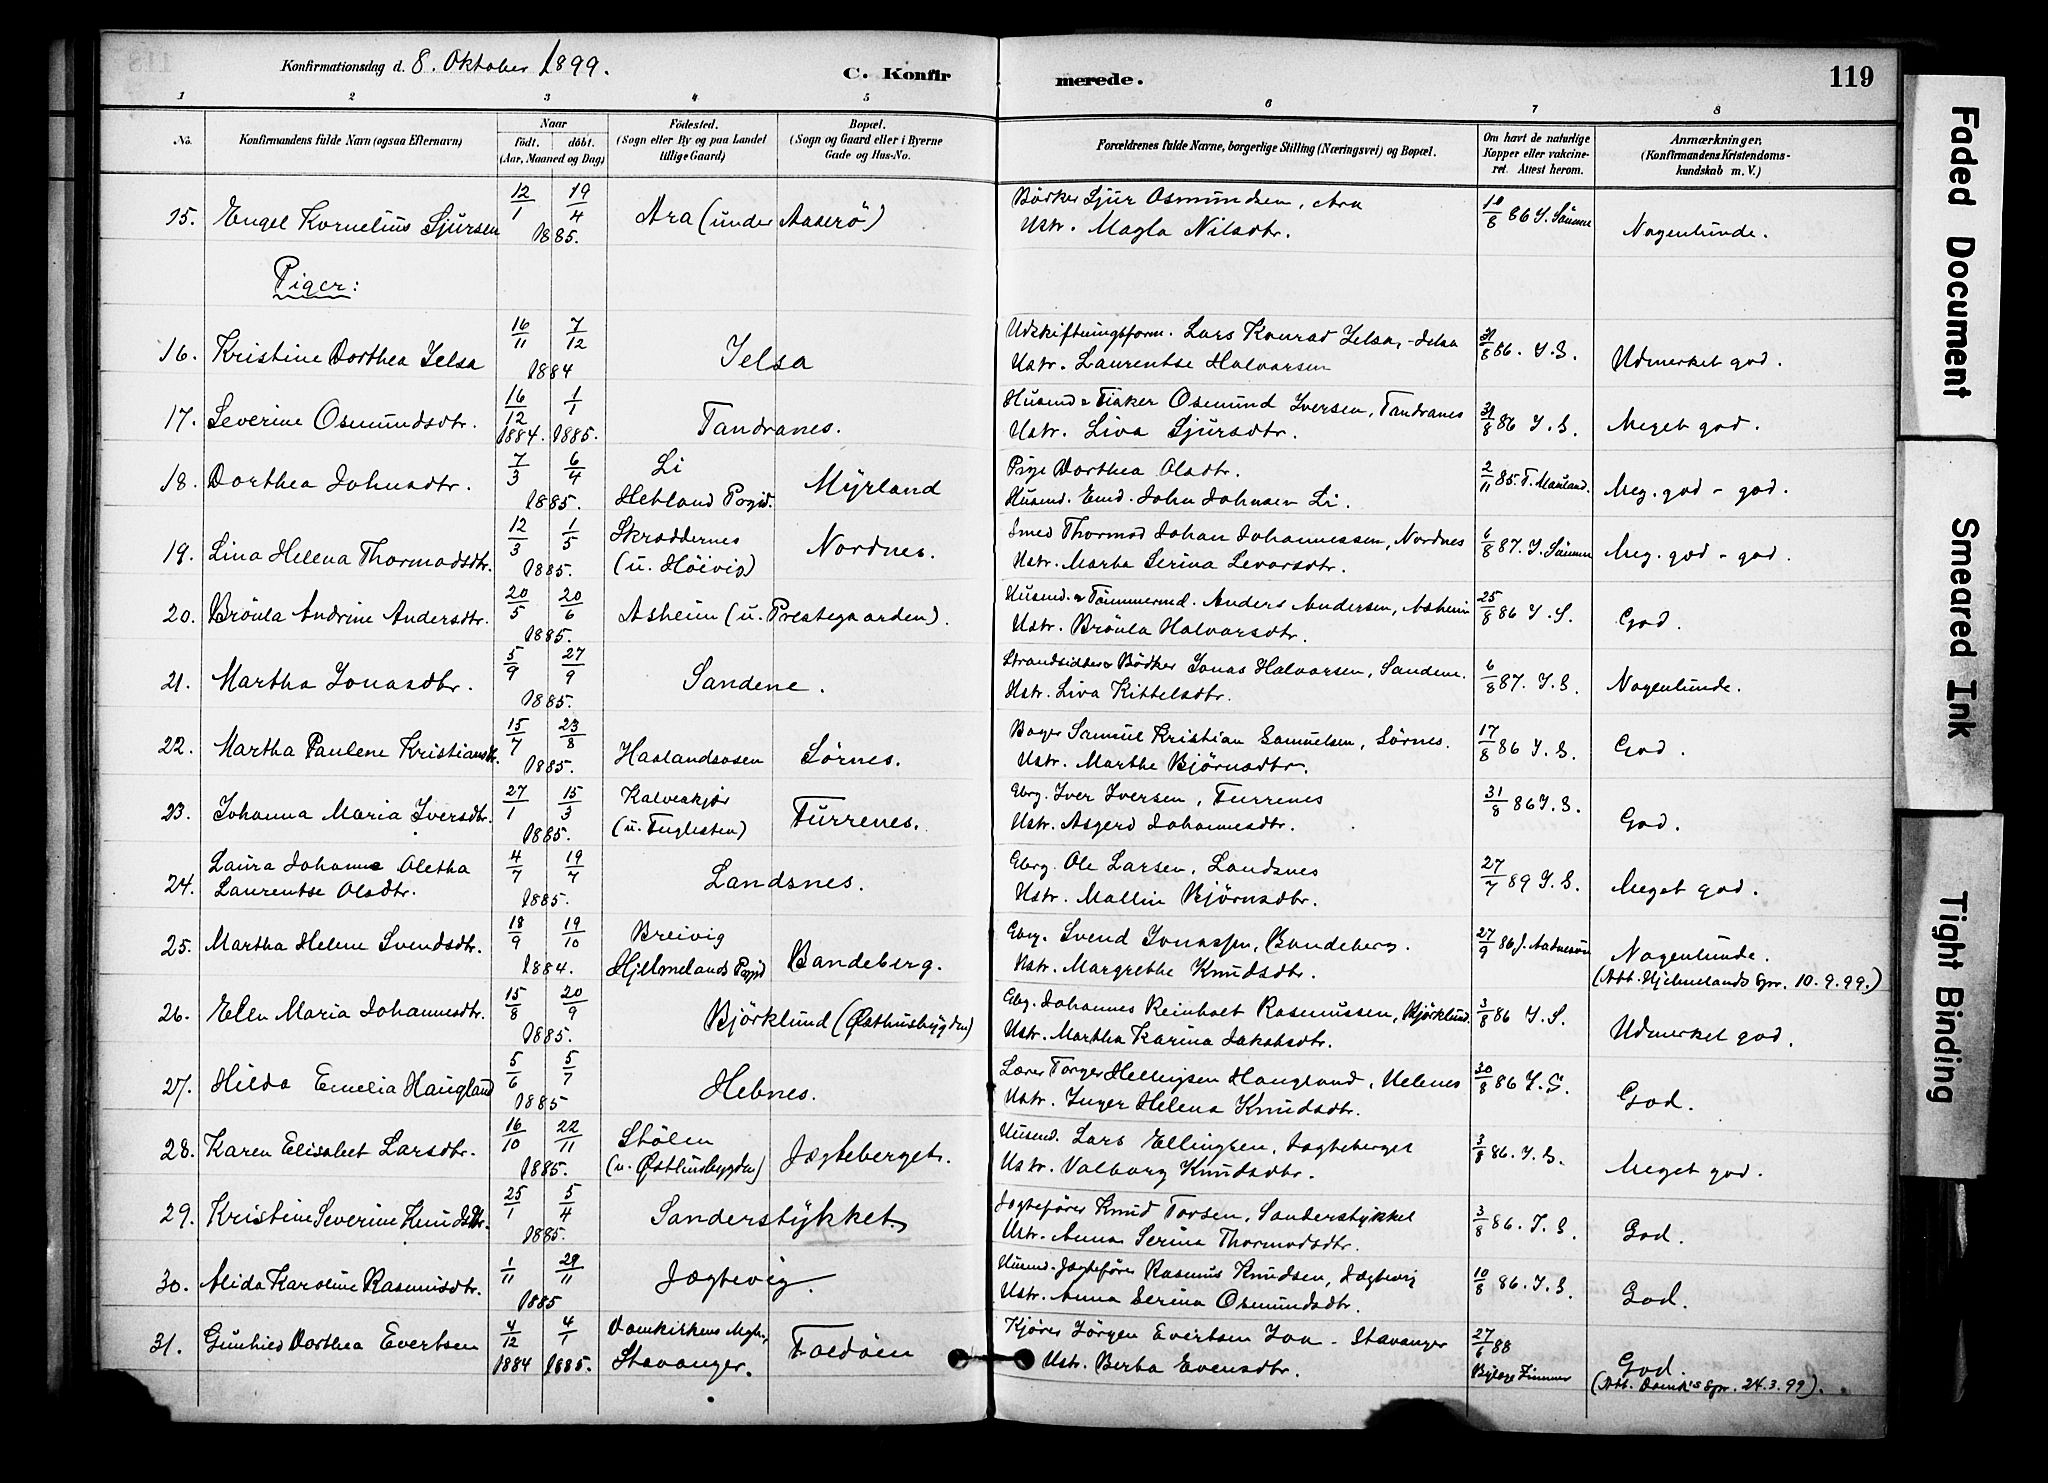 Konfirmationsdag d. 8. Oktober 1899.
C. Konfirmerede.
119
1 2 3 4 5 6 7 8
No.
Konfirmandens fulde Navn (ogsaa Efternavn)
Naar
født. døbt.
(Aar, Maaned og Dag)
Fødested.
(Sogn eller By og paa Landet tillige Gaard)
Bopæl.
(Sogn og Gaard eller i Byerne Gade og Hus-No.
Forældrenes fulde Navne, borgerlige Stilling (Næringsvei) og Bopæl.
Om havt de naturlige Kopper eller vakcineret. Attest herom.
Anmærkninger.
(Konfirmandens Kristendomskundskab m. V.)
15. Engel Kornelius Sjursen 12/1 19/4 1885. Ara (under Aaserö) Bödker Sjur Osmundsen, Ara
Ustr. Magla Nilsdtr. 10/8 86 Nogenlunde.
Piger:
16. Kristine Dorthea Jelsa 16/11 7/12 1884 Jelsa Udskiftningsform. Lars Konrad Jelsa, Jelsa
Ustr. Laurentse Halvorsen 31/8 86. J. S. Udmerket god.
17. Severine Osmundsdtr. 16/12 1884. 1/1 1885. Tandranes. Husmd & Fisker Osmund Iversen, Tandranes
Ustr. Liva Sjursdtr. 31/8 86 J. S. Meget god.
18. Dorthea Johnsdtr. 7/3 6/4 1885. Li
Hebland Pgjd. Myrland Pige Dorthea Olsdtr.
Husmd. Emd. John Johnsen Li. 2/11 85. Meg. god - god.
19. Lina Helena Thormodsdtr. 12/3 1/5 1885. Skraddernes
(u. Höivig) Nordnes. Smed Thormod Johan Johannessen, Nordnes
Ustr. Marta Serina Sevarsdtr. 6/8 87. Meg. god - god.
20. Bröula Andrine Andersdtr. 20/5 20/6 1885. Asheim (u. Prestegaarden). Husmd. & Tömmermd. Anders Andersen, Asheim
Ustr. Bröula Halvorsdtr. 25/8 86 J. S. God.
21. Martha Jonasdtr. 5/9 27/9 1885. Sandene. Strandsidder & Bödker Jonas Halvorsen, Sandene.
Ustr. Liva Kittelsdtr. 6/8 87. J. S. Nogenlunde.
22. Martha Paulene Kristiansdtr. 15/7 23/8 1885. Haslandsosen Sörnes. Bager Samuel Kristian Samuelsen, Sörnes.
Ustr. Marthe Björnsdtr. 17/8 86 J. S. God.
23. Johanna Maria Iversdtr. 27/1 15/3 1885. Kalveskjær
(u. Fuglesten) Furrenes. Gbrg. Iver Iversen, Furrenes
Ustr. Asgerd Johannesdtr. 31/8 86 J. S. God.
24. Laura Johanne Oletha
Laurentse Olsdtr. 4/7 19/7 1885. Landsnes. Gbrg. Ole Larsen, Landsnes
Ustr. Mallin Björnsdtr. 27/7 89 J. S. Meget god.
25. Martha Helene Svendsdtr. 18/9 19/10 1884. Breivig
Hjelmelands Pgjd Bandeberg. Gbrg. Svend Jonassen, Bandeberg.
Ustr. Margrethe Knudsdtr. 27/9 86 Nogenlunde.
(Att. Hjelmelands Spr. 10.9.99.)
26. Elen Maria Johannesdtr. 15/8 20/9 1885. Björklund (Østhusbygden) Gbrg. Johannes Reinholt Rasmussen, Björklund.
Ustr. Martha Karina Jakobsdtr. 3/8 86 J. S. Udmerket god.
27. Hilda Emelia Haugland 5/6 5/7 1885 Hebnes. Lærer Torger Hellingsen Haugland, Hebnes
Ustr. Inger Helena Knudsdtr. 30/8 86 J. S. God.
28. Karen Elisabet Larsdtr. 16/10 22/11 1885. Stölen
(u. Østhusbygden) Jægteberget. Husmd. Lars Ellingsen, Jagteberget
Ustr. Valborg Knudsdtr. 3/8 86. J. S. Meget god.
29. Kristine Severine Knudsdtr. 25/1 5/4 1885. Sanderstykket Jagtefører Knud Torsen, Sanderstykket
Ustr. Anna Serina Thormodsdtr. 3/8 86. J. S. God.
30. Alida Karoline Rasmusdtr. 1/11 29/11 1885 Jægtevig. Husmd. Jægtefører Rasmus Knudsen, Jægtevig
Ustr. Anna Serina Osmundsdtr. 10/8 86. J. S. God.
31. Gunhild Dorthea Evertsen 4/12 1884 4/1 1885. Domkirkens Mgh.,
Stavanger. Foldöen Kjörer Jörgen Evertsen Joa - Stavanger
Ustr. Berta Evensdtr. 27/6 88
Bylæge Zimmer God.
(Att. Domk's Spr. 24.3.99).
Faded Document
Smeared Ink
Tight Binding